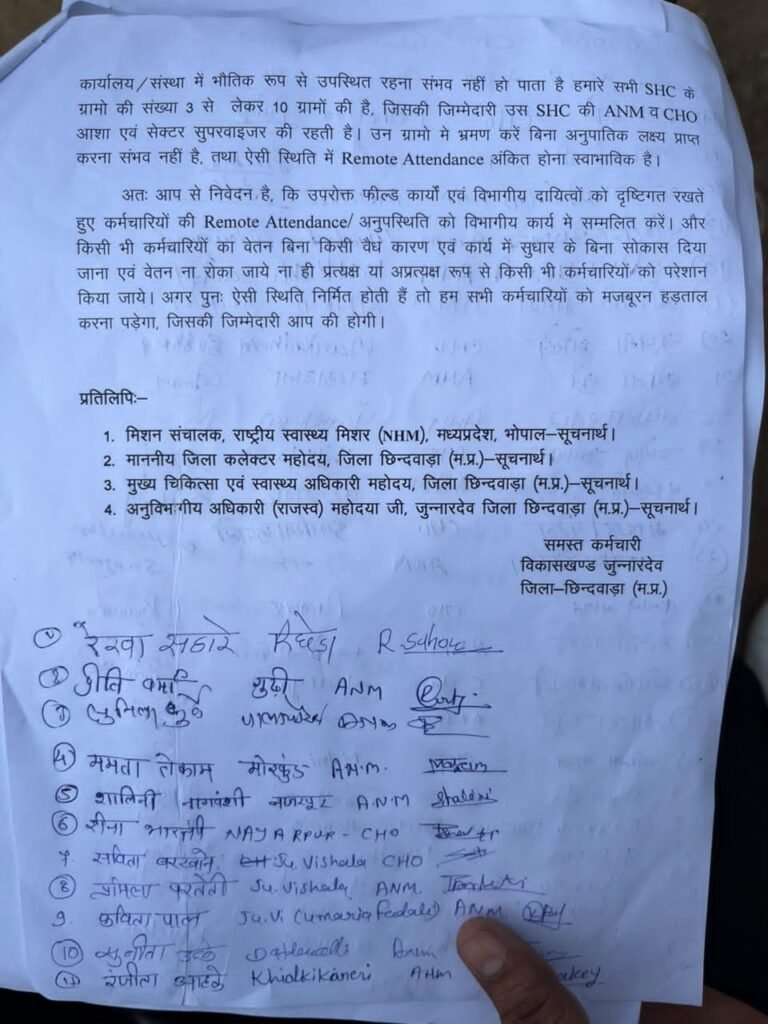 कार्यालय/संस्था में भौतिक रूप से उपस्थित रहना संभव नहीं हो पाता है हमारे सभी SHC के
ग्रामो की संख्या 3 से लेकर 10 ग्रामों की है, जिसकी जिम्मेदारी उस SHC की ANM व CHO
आशा एवं सेक्टर सुपरवाइजर की रहती है। उन ग्रामो मे भ्रमण करें बिना अनुपातिक लक्ष्य प्राप्त
करना संभव नहीं है, तथा ऐसी स्थिति में Remote Attendance अंकित होना स्वाभाविक है।
अतः आप से निवेदन है, कि उपरोक्त फील्ड कार्यो एवं विभागीय दायित्वों को दृष्टिगत रखते
हुए कर्मचारियों की Remote Attendance/ अनुपस्थिति को विभागीय कार्य मे सम्मलित करें। और
किसी भी कर्मचारियों का वेतन बिना किसी वैध कारण एवं कार्य में सुधार के बिना सोकास दिया
जाना एवं वेतन ना रोका जाये ना ही प्रत्यक्ष या अप्रत्यक्ष रूप से किसी भी कर्मचारियों को परेशान
किया जाये। अगर पुनः ऐसी स्थिति निर्मित होती हैं तो हम सभी कर्मचारियों को मजबूरन हड़ताल
करना पड़ेगा, जिसकी जिम्मेदारी आप की होगी।
प्रतिलिपिः–
1. मिशन संचालक, राष्ट्रीय स्वास्थ्य मिशर (NHM), मध्यप्रदेश, भोपाल–सूचनार्थ।
2. माननीय जिला कलेक्टर महोदय, जिला छिन्दवाड़ा (म.प्र.)–सूचनार्थ।
3. मुख्य चिकित्सा एवं स्वास्थ्य अधिकारी महोदय, जिला छिन्दवाड़ा (म.प्र.)–सूचनार्थ।
4. अनुविभागीय अधिकारी (राजस्व) महोदया जी, जुन्नारदेव जिला छिन्दवाड़ा (म.प्र.)–सूचनार्थ।
समस्त कर्मचारी
विकासखण्ड जुन्नारदेव
जिला–छिन्दवाड़ा (म.प्र.)
1 रेखा सहारे
2 वर्मा ANM
3
4 ममता तेकाम मोरकुंड A.N.M.
5 शालिनी नागवंशी A.N.M Shalini
6 रीना NAYARPUR - CHO
7. सविता Ju. Vishala CHO
8 Ju. Vishala ANM.
9. कविता पाल Ju.Vi (Umaria Fadali) ANM
10 सुनीता
11 रंजीता Khidkikaneri ANM